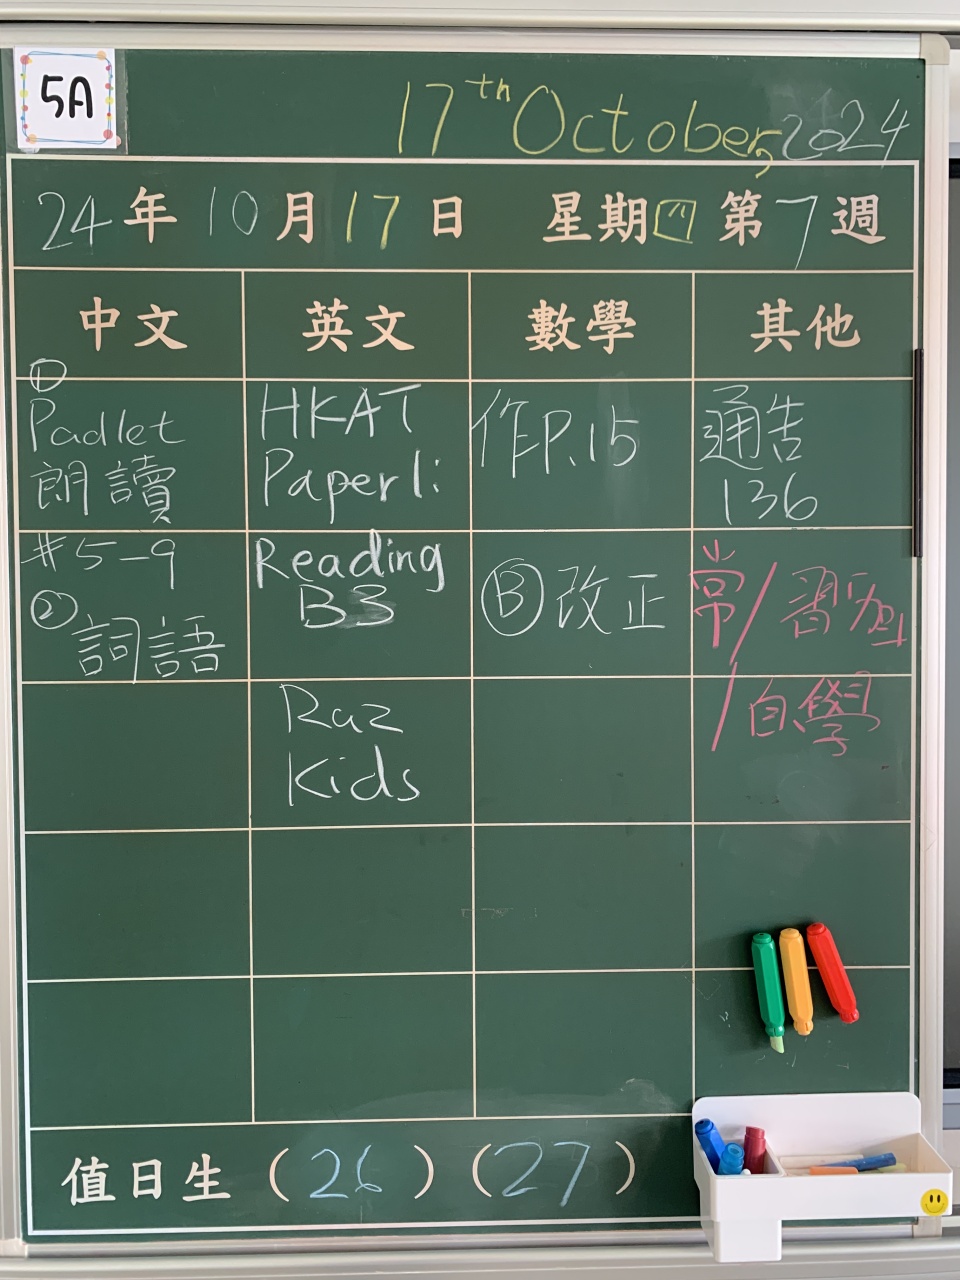 5A
17th October, 2024
24年10月17日 星期四 第7週
中文 英文 數學 其他
①
Padlet
朗讀
#5-9
②
詞語
HKAT
Paper 1:
Reading
B3
Raz
Kids
作P.15
Ⓑ改正
通告
136
常/習
/自學
值日生 (26) (27)